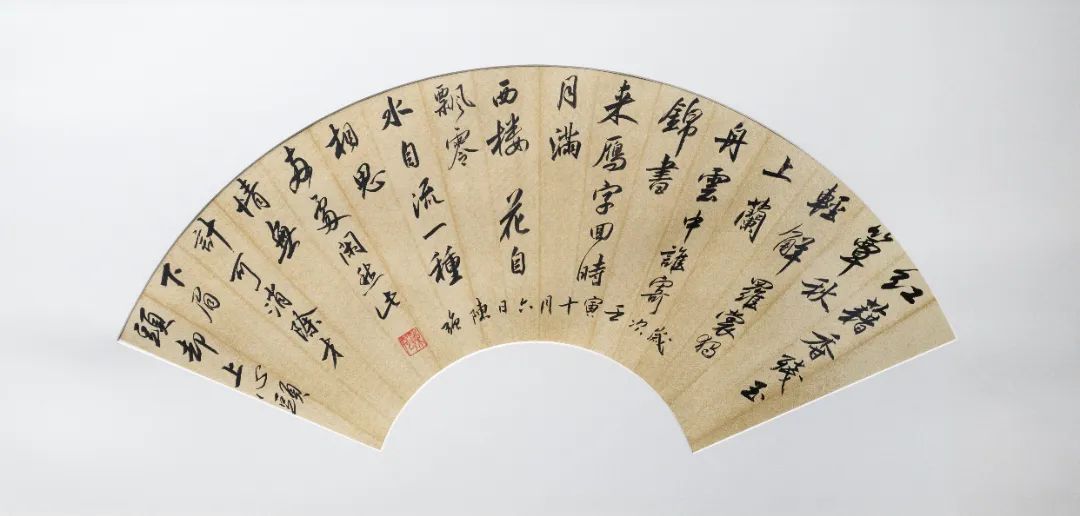 红藕香残玉
簟秋
輕解羅裳獨
上蘭
舟雲中誰寄
錦書
来雁字回時
月滿
西楼花自
飄零
水自流一種
相思
两處闲愁此
情無
計可消除才
下眉
頭却上心頭
歲次壬寅十月六日陳